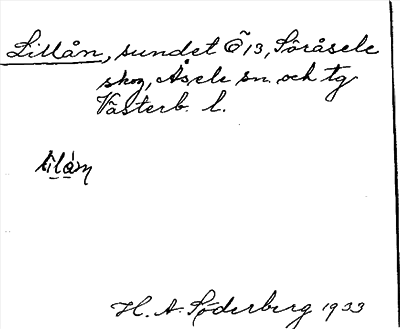 Lillån, sundet Ö 13, Söråsele
skog, Åsele sn. och tg
Västerb. l.
H. A. Söderberg 1933